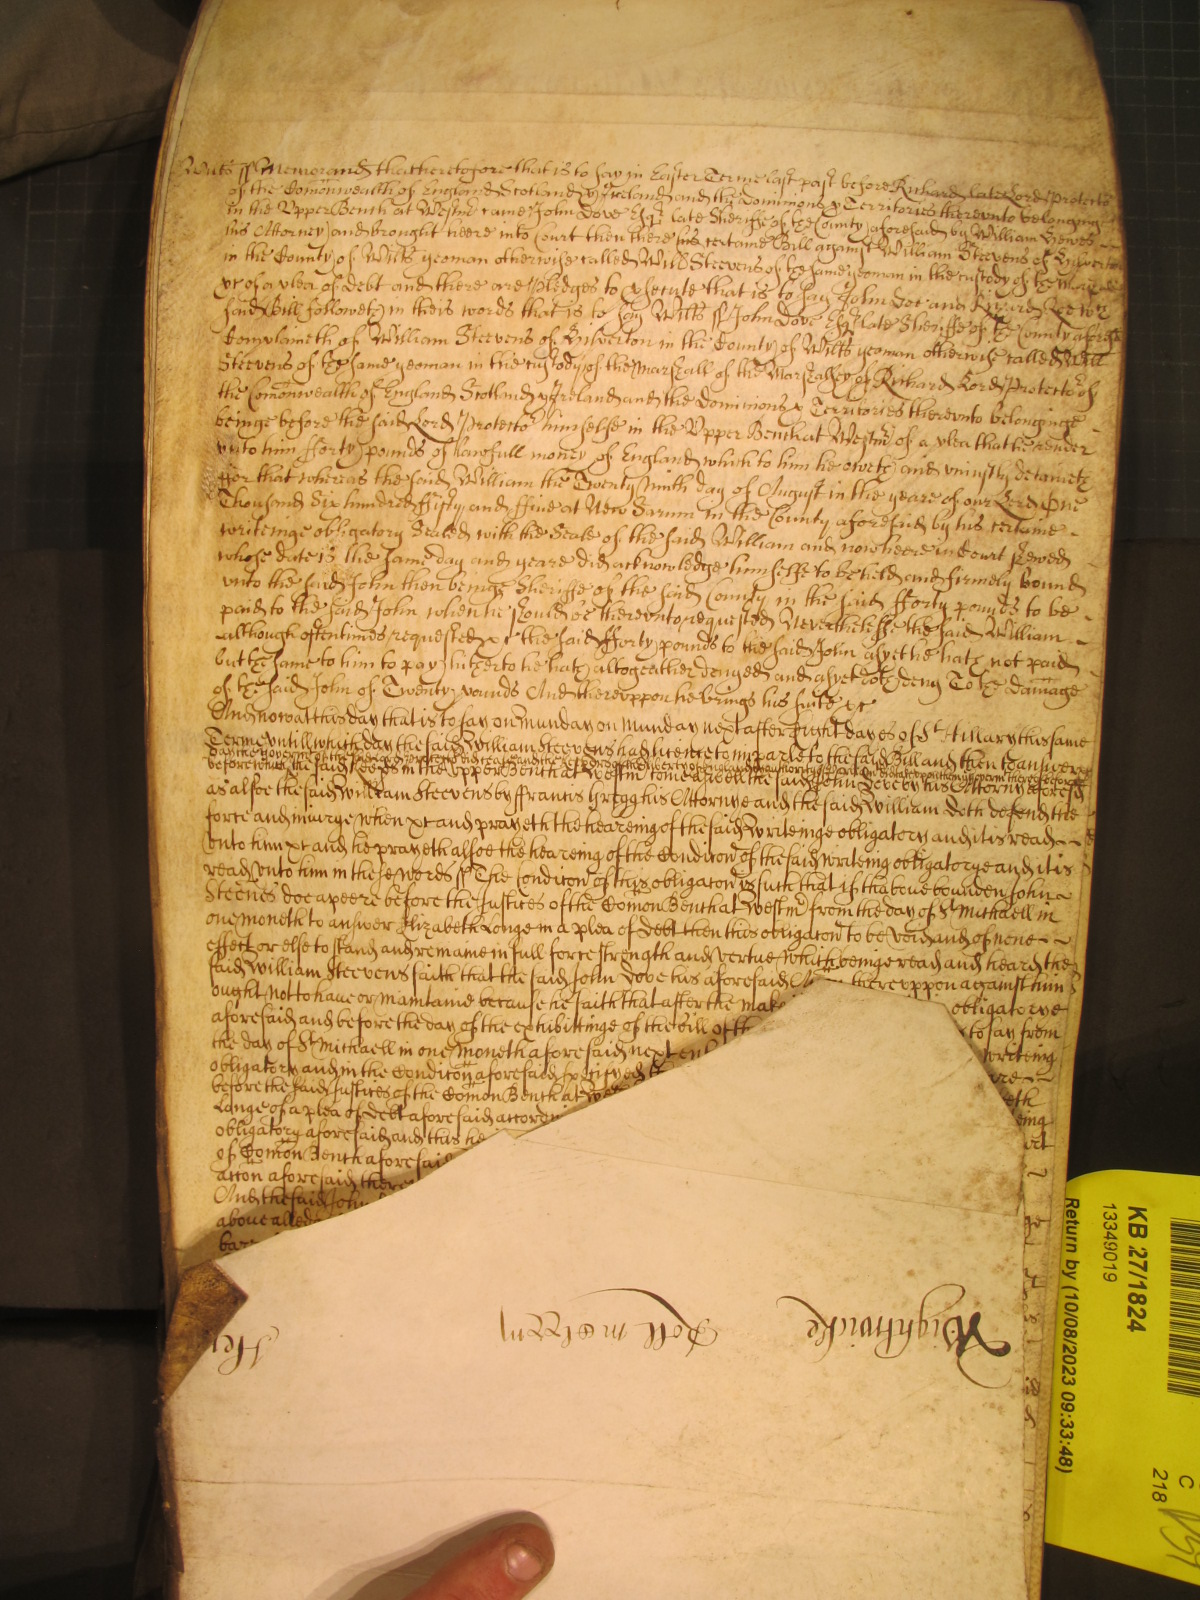 Wilts ss Memorand that heretofore that is to say in Easter Terme last past before Richard late Lord Protector
of the Comonwealth of England Scotland & Ireland and the Dominions & Territories therevnto belonging
in the Vpper Bench at Westmr came John Dove Esqr late Sheriffe of the County aforesaid by William
his Attorney and brought heere into Court then there his certaine Bill against William Steevens of Gilverton
in the County of Wilts yeoman otherwise called Will Steevens of the same yeoman in the custody of the Marshall
&c of a plea of debt and there are pledges to psecute that is to say John Doe and Richard Roe wch
said Bill followeth in theis words that is to say Wilts ss John Dove Esqr late Sheriffe of the County aforesd
Complaineth of William Steevens of Gilverton in the County of Wilts yeoman otherwise called Will
Steevens of the same yeoman in the custody of the Marshall of the Marshalsey of Richard Lord Protector of
the Comonwealth of England Scotland & Ireland and the Dominions & Territories therevnto belonginge
beinge before the said Lord Protector himselfe in the Vpper Bench at Westmr of a plea that he render
vnto him fforty pounds of lawfull money of England which to him he oweth and vniustly detaineth
ffor that whereas the said William the Twenty Ninth day of August in the yeare of our Lord One
Thousand Six hundred ffifty and ffive at New Sarum in the County aforesaid by his certaine
writeinge obligatory Sealed with the Seale of the said William and now heere in Court shewed
whose date is the same day and yeare did acknowledge himselfe to be held and firmely bound
vnto the said John then beinge Sheriffe of the said County in the said fforty pounds to be
paid to the said John when he should be therevnto requested Neverthelesse the said William
although oftentimes requested &c the said fforty pounds to the said John as yet he hath not paid
but the same to him to pay hitherto he hath altogeather denyed and as yet doth deny To the damage
of the said John of Twenty pounds And therevppon he brings his suite &c
And now at this day that is to say on Munday on Munday next after Eight dayes of St Hillary this same
Terme vntill which day the said William Steevens had licence to imparle to the said Bill and then to answer
before the said Keeps in the vpper Bench at Westmr come aswell the said John Dove by his Attorny aforesd
as alsoe the said William Steevens by ffrancis Gregg his Attornye and the said William doth defend the
force and iniurye when &c and prayeth the heareing of the said writeinge obligatory and it is read
vnto him &c and he prayeth alsoe the heareing of the Condicon of the said writeing obligatorye and it is
read vnto him in these words ss The Condicon of this obligacon is such that if thaboue bounden John
Steenes doe apeere before the Justices of the Comon Bench at Westmr from the day of St Michaell in
one moneth to answer Elizabeth Longe in a plea of Debt then this obligacon to be void and of none
effect or else to stand and remaine in full force strength and vertue which beinge read and heard the
said William Steevens saith that the said John Dove his aforesaid therevppon against him
ought not to haue or maintaine because he saith that after the obligatorye
aforesaid and before the day of the exhibittinge of the Bill of to say from
the day of St Michaell in one moneth aforesaid next writeing
obligatory and in the Condicon aforesaid specifyed
before the said Justices of the Comon Bench at
Longe of a plea of Debt aforesaid
obligatory aforesaid and this he
of Comon Bench aforesaid
accon aforesaid
And the said John
aboue

Wightwicke
Roll
KB 27/1824
13349019
Return by (10/08/2023 09:33:48)
C
218